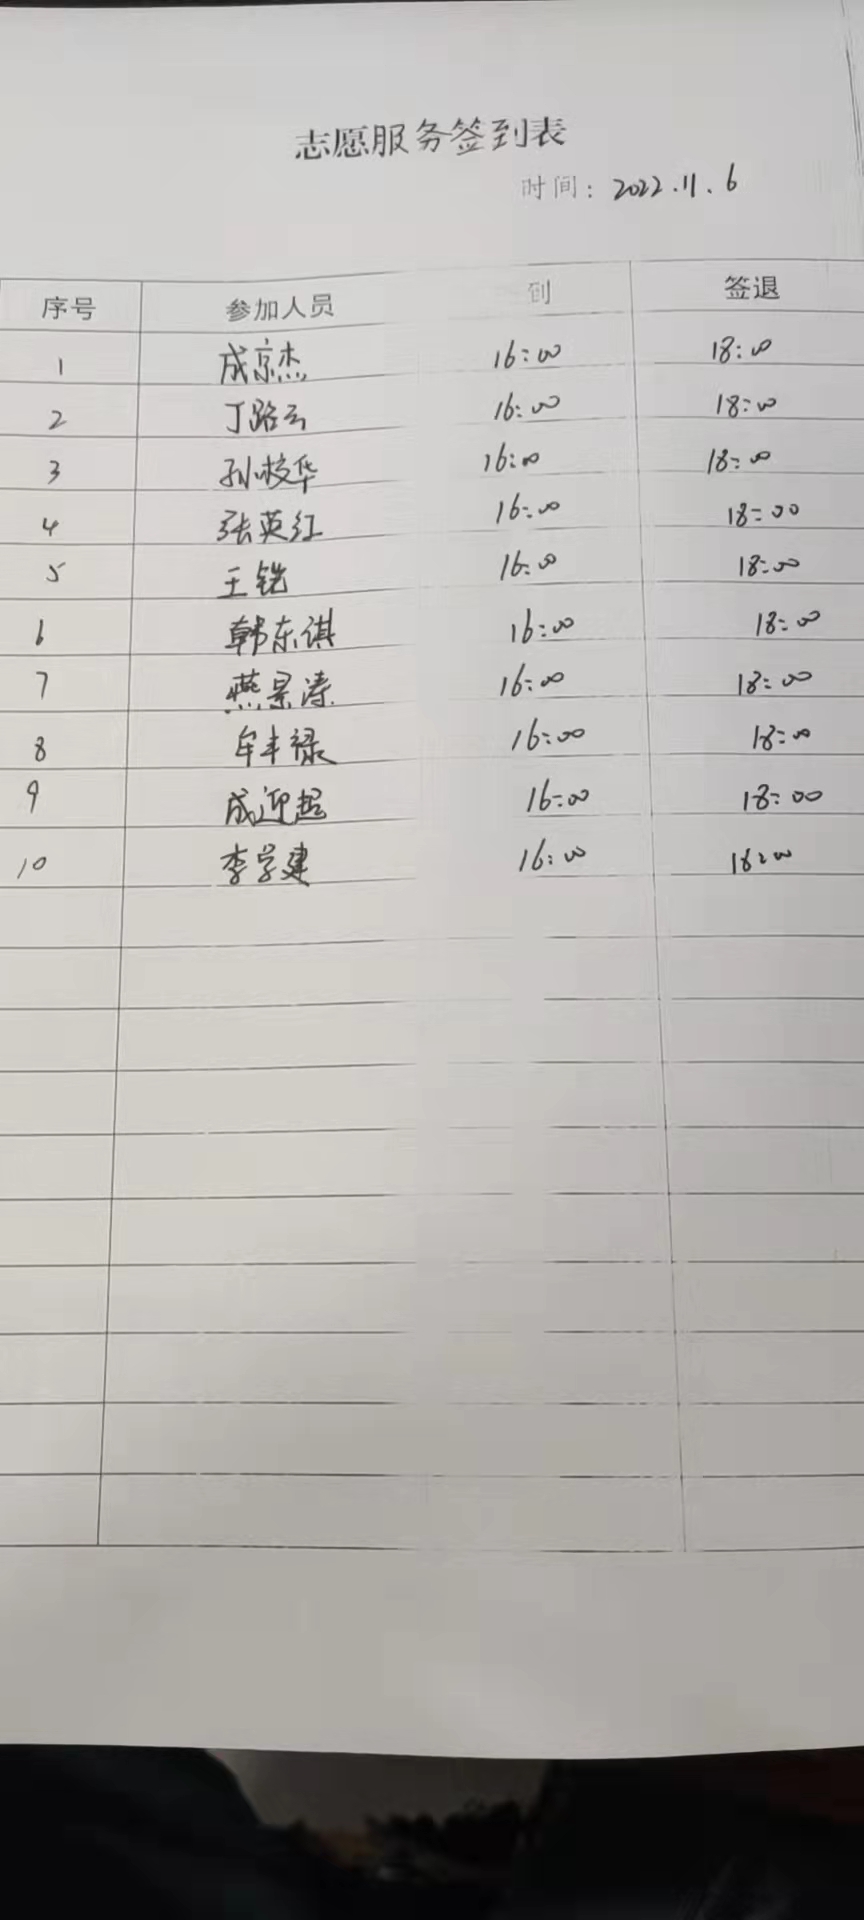 志愿服务签到表
时间：2022.11.6
序号 参加人员 到 签退
1 成京杰 16:00 18:00
2 丁路云 16:00 18:00
3 孙枝华 16:00 18:00
4 张英红 16:00 18:00
5 王铣 16:00 18:00
6 韩东祺 16:00 18:00
7 燕景涛 16:00 18:00
8 牟丰禄 16:00 18:00
9 成迎超 16:00 18:00
10 李学建 16:00 18:00